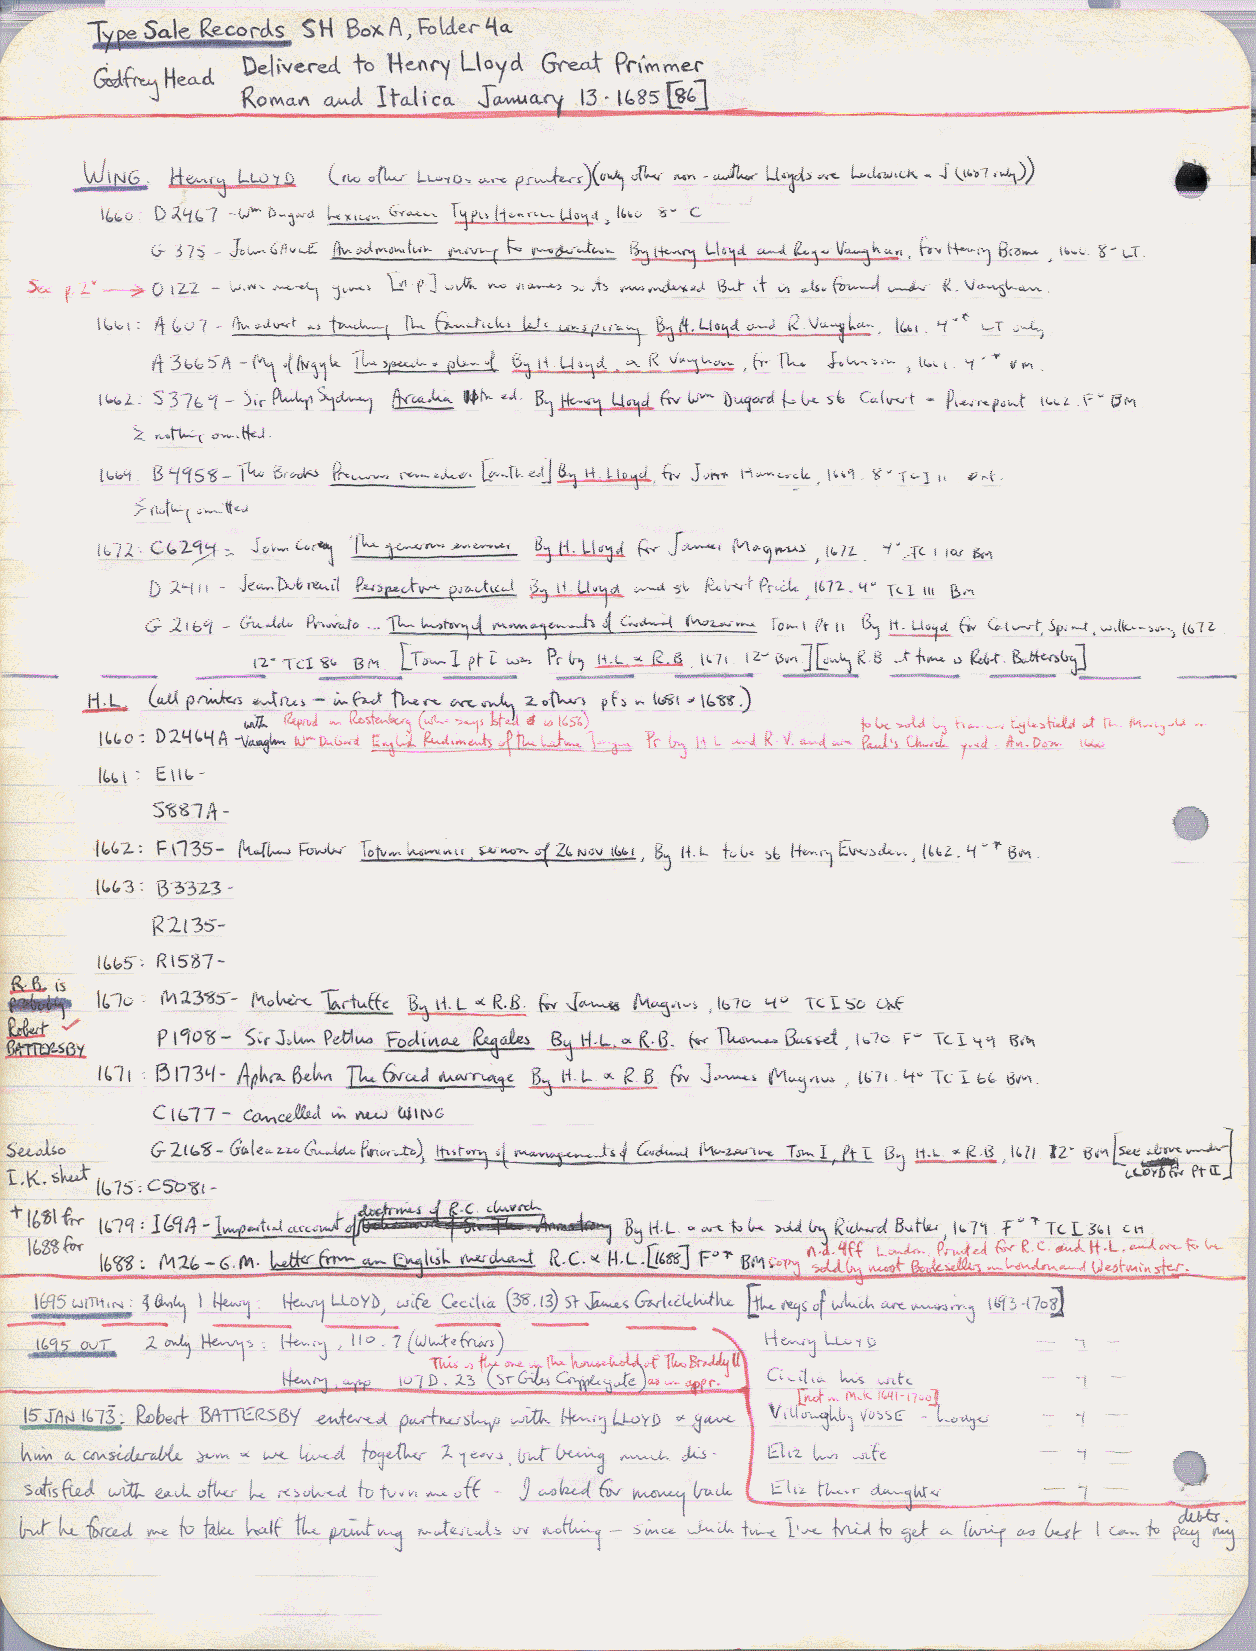 Type Sale Records SH Box A, Folder 4a
Godfrey Head Delivered to Henry Lloyd Great Primmer
Roman and Italica January 13 · 1685 [86]
WING. Henry LLOYD (no other LLOYDs are printers) (only other non-author Lloyds are Lodowick + J (1607 only))
1660: D2467 - Wm Dugard Lexicon Graeci Typis Henrici Lloyd, 1660 8° C
G 375 - John GAULE An admonition moving to moderation By Henry Lloyd and Roger Vaughan, for Henry Brome, 1660. 8° LT.
See p. 2v → O122 - Wing merely gives [n.p] with no names so its misindexed But it is also found under R. Vaughan.
1661: A607 - An advert as touching the fanaticks late conspiracy By H. Lloyd and R. Vaughan, 1661. 4°* LT only
A3665A - Mq of Argyle The speech + plea of By H. Lloyd, & R Vaughan, for Tho Johnson, 1661. 4°* BM.
1662: S3769 - Sir Philip Sydney Arcadia 11th ed. By Henry Lloyd for Wm Dugard to be sb Calvert + Pierrepont 1662. F° BM
nothing omitted.
1669. B4958 - Tho Brooks Precious remedies By H. Lloyd, for John Hancock, 1669. 8° TC I 11
nothing omitted
1672: C6294 - John Corey The generous enemies By H. Lloyd for James Magnus, 1672. 4°. TC I 102 BM
D 2411 - Jean Dubreuil Perspective practical By H Lloyd and sb Robert Prick, 1672. 4° TC I 111 BM
G 2169 - Gualdo Priorato ... The history of managements of Cardinal Mazarine Tom I Pt II By H. Lloyd for Calvert, Sprint, Wilkinson, 1672
12° TC I 86 BM. [Tom I pt I was Pr by H.L & R.B, 1671. 12° BM] [only R.B at time is Robt. Battersby]
H.L. (all printers entries - in fact there are only 2 others pfs in 1681 + 1688.)
with Reprod in Rostenberg (who says 1st ed is 1656) to be sold by Francis Eglesfield at the Marygold in
1660: D2464A - Vaughn Wm DuGard English Rudiments of the Latine Tongue Pr by H L and R.V. and are Paul's Church yard. An. Dom. 1660
1661: E116 -
S887A -
1662: F1735 - Mathew Fowler Totum hominis, sermon of 26 Nov 1661, By H.L to be sb Henry Eversden, 1662. 4°* BM.
1663: B3323 -
R2135 -
1665: R1587 -
R.B. is
probably
Robert ✓
BATTERSBY
1670: M2385 - Molière Tartuffe By H.L & R.B. for James Magnus, 1670 4° TC I 50
P1908 - Sir John Pettus Fodinae Regales By H.L. & R.B. for Thomas Basset, 1670 F° TC I 49 BM
1671: B1734 - Aphra Behn The forced marriage By H.L & R.B for James Magnus, 1671. 4° TC I 66 BM.
C1677 - cancelled in new WING
See also
I.K. sheet
G 2168 - Galeazzo Gualdo Priorato), History of managements of Cardinal Mazarine Tom I, Pt I By H.L & R.B, 1671 12° BM [see above under
LLOYD for Pt II]
1675: C5081 -
doctrines of R.C. church
+ 1681 for
1688 for
1679: I69A - Impartial account of behaviour of Sir Tho. Armstrong By H.L. & are to be sold by Richard Butler, 1679 F°* TC I 361 CH
1688: M26 - G.M. Letter from an English merchant R.C. & H.L. [1688] F°* BM copy n.d. 4ff London. Printed for R.C. and H.L. and are to be
sold by most Booksellers in London and Westminster.
1695 WITHIN: Only 1 Henry: Henry LLOYD, wife Cecilia (38.13) St James Garlickhithe [the regs of which are missing 1693-1708]
1695 OUT 2 only Henrys: Henry, 110. 7 (Whitefriars)
This is the one in the household of Tho Braddyll
Henry, app 107D. 23 (St Giles Cripplegate) as an appr.
Henry LLOYD
Cicilia his wife
[not in McK 1641-1700]
Villoughby VOSSE - lodger
Eliz his wife
Eliz their daughter
15 JAN 1673: Robert BATTERSBY entered partnership with Henry LLOYD & gave
him a considerable sum & we lived together 2 years, but being much dis-
satisfied with each other he resolved to turn me off - I asked for money back
but he forced me to take half the printing materials or nothing - since which time I've tried to get a living as best I can to pay my
debts.